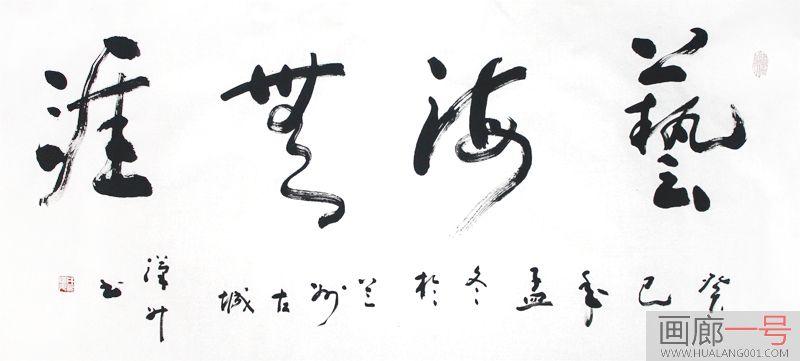 藝海無涯
癸巳年孟冬於兰州古城 书
画廊一号
WWW.HUALANG001.COM